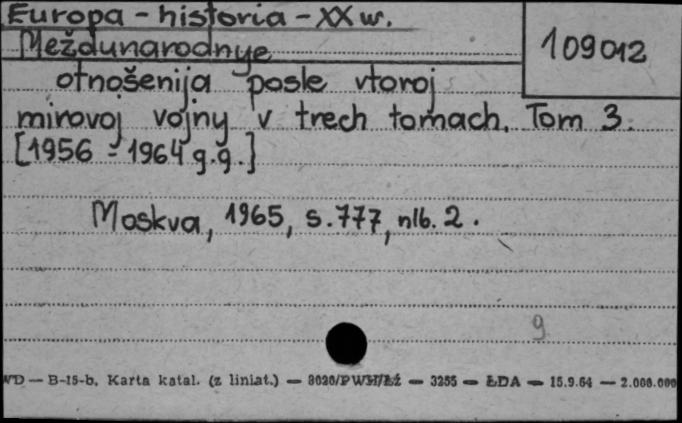 Europa - historia - XX w.
Meždunarodnye
109012
otnošenija posle vtoroj
mirovoj vojny v trech tomach. Tom 3.
[1956 - 1964 g.g.]
Moskva, 1965, s. 777, nlb. 2.
9
WD — B-15-b, Karta katal. (z liniat.) — 8020/PWH/Łź — 3255 — ŁDA — 15.9.64 — 2.000.000